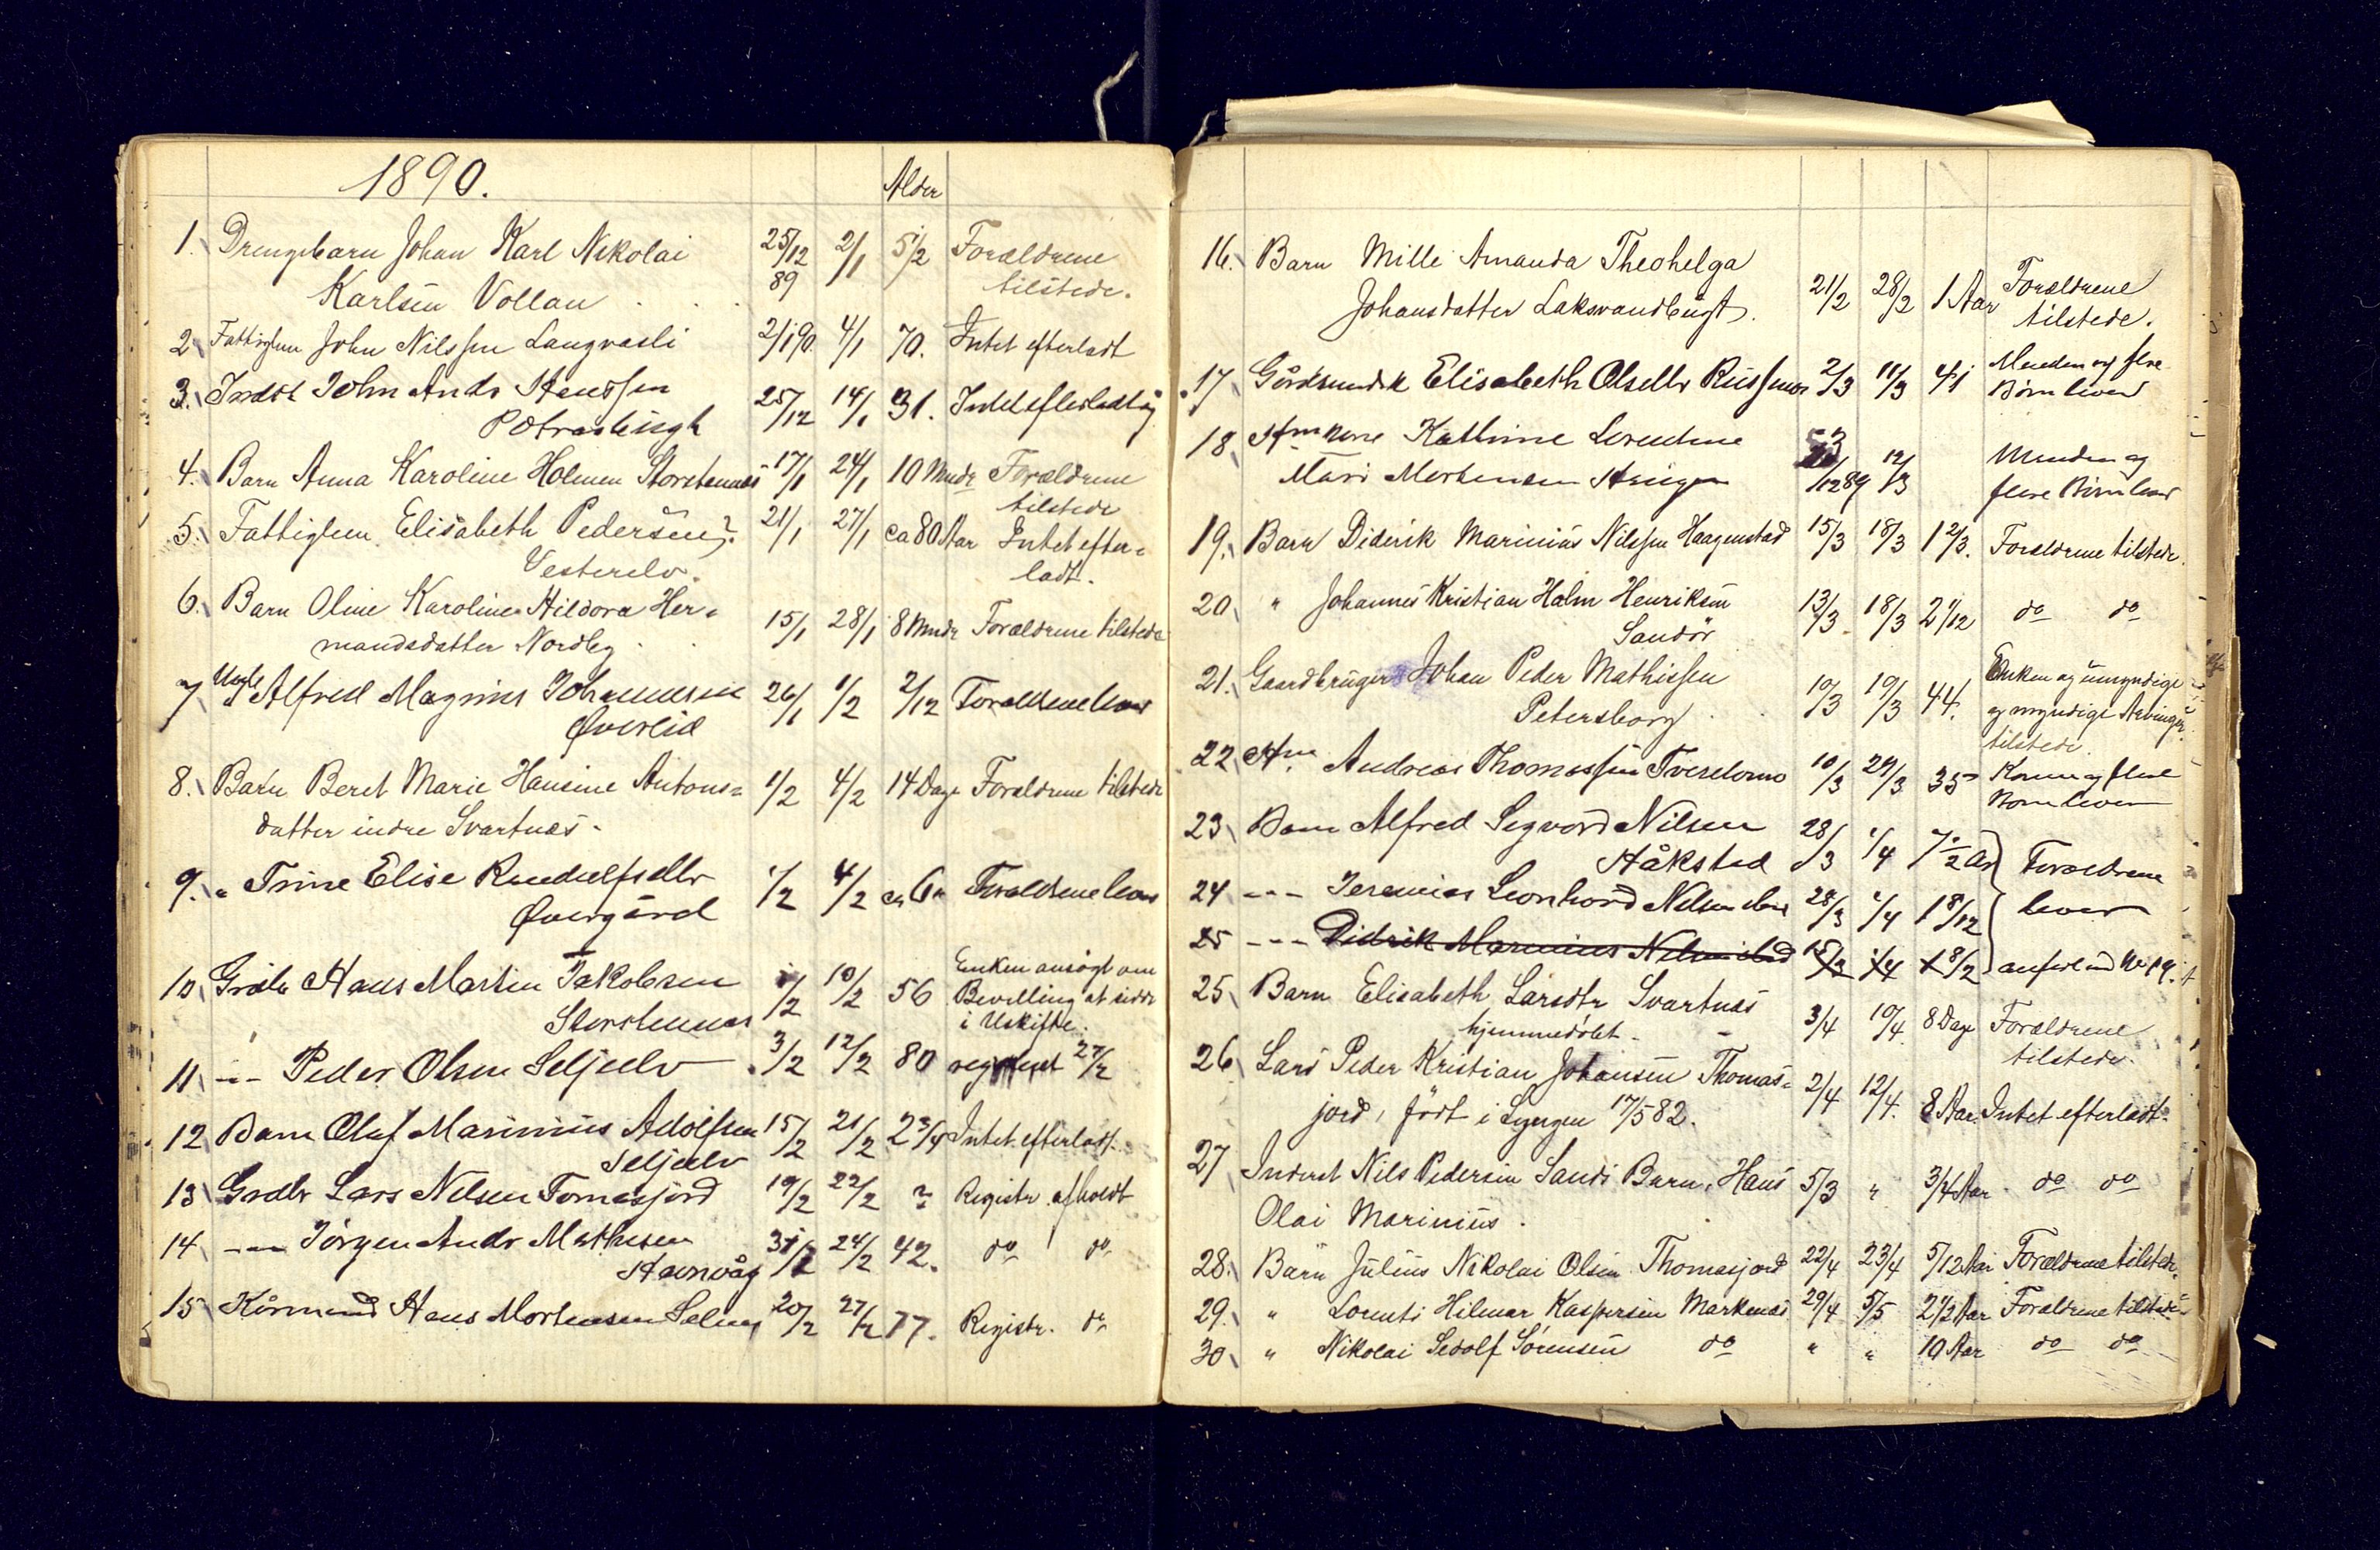 1890.
Alder
1. Drengebarn Johan Karl Nikolai 25/12 2/1 5 1/2 Forældrene
Karlsen Vollan 89 tilstede.
2 Fattiglem John Nilssen Langvasli 2/1 90. 4/1 70. Intet efterladt
3. Inderst John Andr Hanssen 25/12 14/1 31. Intet efterladt
4. Barn Anna Karoline Holmen Storstennæs 17/1 24/1 10 Mndr Forældrene
tilstede
5. Fattiglem Elisabeth Pedersen? 21/1 27/1 ca 80 Aar Intet efter=
Vesterelv. ladt.
6. Barn Oline Karoline Hildora Her=
mandsdatter Nordby 15/1 28/1 8 Mndr Forældrene tilstede
7 Alfred Magnus Johannesen 26/1 1/2 2/12 Forældrene lever
Øverlid
8. Barn Beret Marie Hansine Antons= 1/2 4/2 14 Dage Forældrene tilstede
datter indre Svartnæs.
9. " Trine Elise Rendulfsdtr 1/2 4/2 Forældrene lever
Øvergård
10 Grdbr Hans Martin Jakobsen 1/2 10/2 56 Enken ansøgt om
Bevilling at sidde
Storstennæs i Uskifte.
11 --- Peder Olsen Seljeelv 3/2 12/2 80 27/2
12 Barn Oluf Marinius Adolfsen 15/2 21/2 2 3/4 Intet efterladt.
Seljeelv
13 Grdbr Lars Nilsen Tomasjord 19/2 22/2 ? Registr. afholdt
14 --- Jørgen Andr Mathisen 31/1 24/2 42. do do
Havnvåg
15 Kårmand Hans Mortensen Selnes 20/2 27/2 77. Registr. do
16. Barn Mille Amanda Theohelga
Johansdatter Laksvandbugt. 21/2 28/2 1 Aar Forældrene
tilstede.
17 Elisabeth Olsdtr Russenes 2/3 11/3 41 Manden og flere
Børn lever
18 Kathrine Lorentine
Mari Mortensen 12/89 12/3 Manden og
flere Børn lever
19. Barn Diderik Marinius Nilssen Haagenstad 15/3 18/3 1 2/3. Forældrene tilstede.
20 " Johannes Kristian Halm Henriksen 13/3 18/3 2 1/12 do do
Sandør
21. Gaardbruger Johan Peder Mathissen Enken og umyndige
Petersborg 10/3 19/3 44. og myndige Arvinger
tilstede.
22 Andreas Thomassen Tverelvmo 10/3 29/3 35 Konen og flere
Børn lever
23 Barn Alfred Sigvard Nilsen 28/3 1/4 7 1/2 År Forældrene
Håkstad
24 --- Jeremias Leonhard Nilsen 28/3 1/4 1 8/12 lever
25 --- Didrik Marinius Nilsen 15/3 1/4 1 8/2 anført ind No 19.
25 Barn Elisabeth Larsdtr Svartnæs
hjemmedøbt. 3/4 10/4. 8 Dage Forældrene
tilstede.
26 Lars Peder Kristian Johansen Thomas= 2/4 12/4. 8 Aar Intet efterladt.
jord, født i Lyngen 17/5 82.
27 Inderst Nils Pedersen Sands Barn, Hans 5/3 " 3/4 Aar do do
Olai Marinius.
28. Barn Julius Nikolai Olsen Thomasjord 22/4 23/4 5/12 Aar Forældrene tilstede.
29. " Lorents Hilmar Kaspersen Markenæs 29/4 5/5 2 1/2 Aar Forældrene tilstede
30 " Nikolai Sedolf Sørensen do " " 10 Aar do do